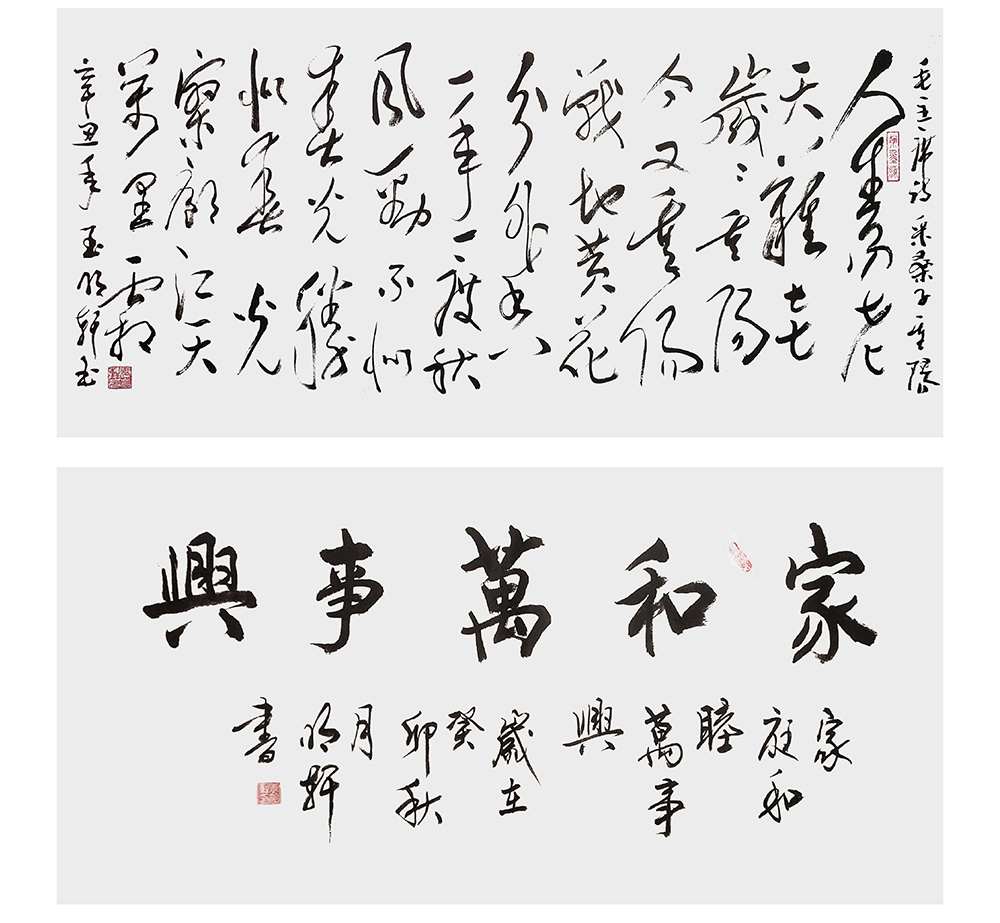 毛主席詩采桑子重陽
人生易老
天難老
歲歲重陽
今又重陽
戰地黃花
分外香
一年一度秋
風勁不似
春光勝
似春光
寥廓江天
萬里霜
辛丑年玉明軒書
家和萬事興
家
庭和
睦
萬事
興
歲在
癸
卯秋
月
明軒
書